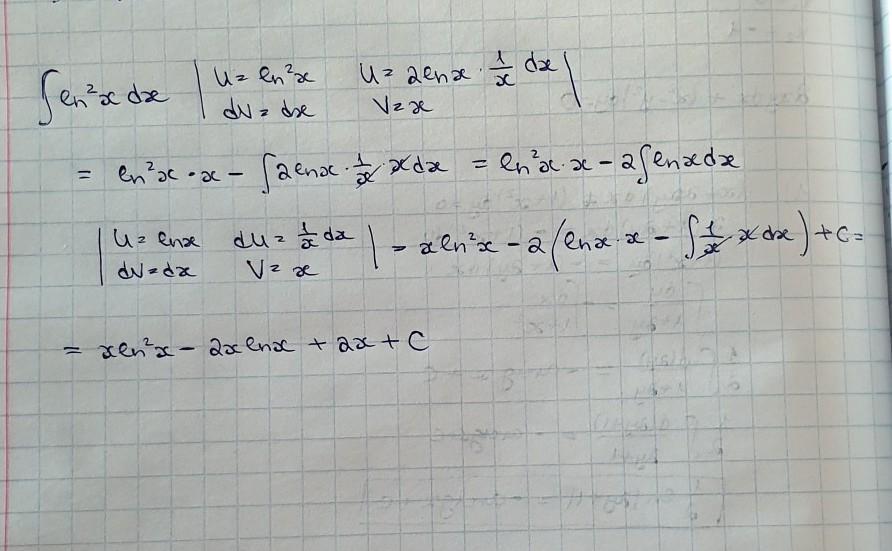 ∫ ln²x dx | U = ln²x   U = 2lnx · 1/x dx |
| dV = dx   V = x |
= ln²x · x − ∫ 2lnx · 1/x · x dx = ln²x · x − 2∫ lnx dx
| U = lnx   dU = 1/x dx | − x ln²x − 2(lnx · x − ∫ 1/x · x dx) + C =
| dV = dx   V = x |
= x ln²x − 2x lnx + 2x + C